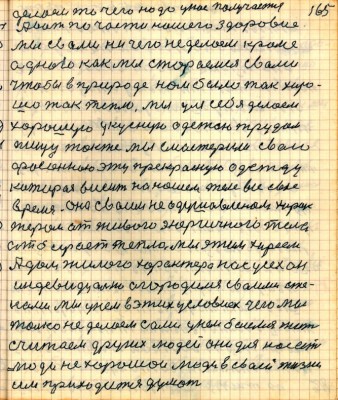 165
делаем то чего надо у нас получается
даат по части нашего здоровие.
мы свами ни чего неделоем кроме
адного как мы стораемся свами
чтобы в природе ном было так хоро-
шо так тепло, мы ум себя делоем
хорошую укусную одежou трудам
пищу тоже мы смастерили свою
фасонною эту прекрасную одежду
каторая висит на нашем теле все свое
время. она свами не одушивленам харак
тером от живого энергичного тела
сабирает тепло, мы этим хиреем
А дом жилого характера нас успехом
индевидуально огородился своими сте-
нами мы у нем в этих условиях чего мы
только не делоем сами у нем боимся
считаем других людей они для нас есть
люди не хорошои люди в своей жизни
им приходится думат